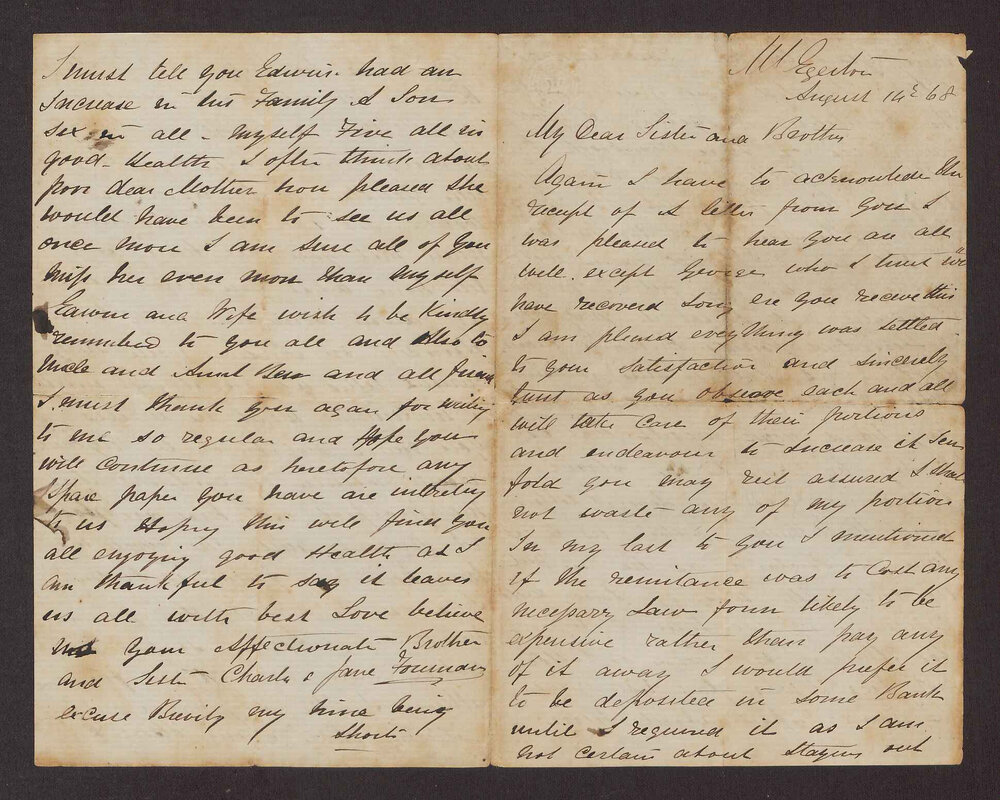 Mt Egerton
August 14th 68
My Dear Sister and Brother
Again I have to acknowledge the
receipt of A letter from you I
was pleased to hear you are all
well. except George who I trust will
have recoverd long ere you receive this
I am pleased everything was settled
to your satisfaction and sincerely
trust as you observe each and all
will take care of their portions
and endeavour to increase it ten
fold you may rest assured I shall
not waste any of my portion
In my last to you I mentioned
if the remitance was to cost any
necessary Law form likely to be
expensive rather than pay any
of it away I would prefer it
to be deposited in some Bank
until I required it as I am
not certain about staying out
I must tell you Edwin had an
increase in his Family A Son
six in all - myself Five all in
good Health I often think about
poor dear Mother how pleased she
would have been to see us all
once more I am sure all of you
miss her even more than myself
Edwin and Wife wish to be Kindly
remembed to you all and Also to
Uncle and Aunt and all friends
I must thank you again for writing
to me so regular and Hope you
will continue as heretofore any
spare paper you have are intresting
to us Hoping this will find you
all enjoying good Health as I
am thankful to say it leaves
us all with best Love believe
your Affectionate Brother
and Sister Charles & Jane
excuse Brevity my time being
short